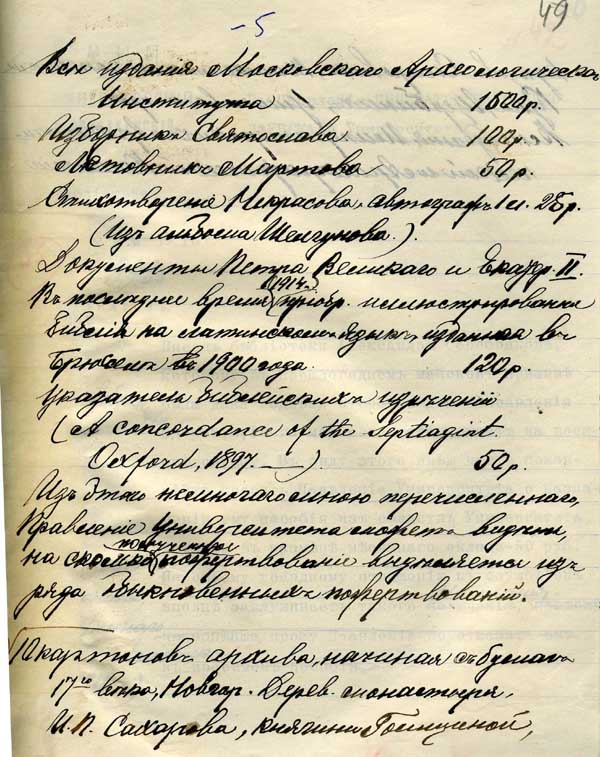 - 5
49
Всѣ изданія Московскаго Археологическаго
Института 1500р.
Изборникъ Святослава 100р.
Лѣтовникъ Мартова 50р.
Стихотвореніе Некрасова, автографъ 1 л. 25р.
(Изъ альбома Шелгунова.)
Документы Петра Великаго и II.
1914г.
Въ последнее время пріобр. иллюстрированная
Библія на латинскомъ языкѣ, изданная въ
Брюсселѣ въ 1900 года. 120р.
Указатель библейскихъ изреченій
(A concordance of the Septiagint.
Oxford, 1897. —) 50р.
Изъ этого немногаго мною перечисленнаго,
Правленіе Университета можетъ видѣть,
полученное
на сколько пожертвованіе выдѣляется изъ
ряда обыкновенныхъ пожертвованій.
10 картоновъ архива, начиная съ бумагъ
17го вѣка, Новгор. Дерев. монастыря,
И. П. Сахарова, княгини Голицыной,